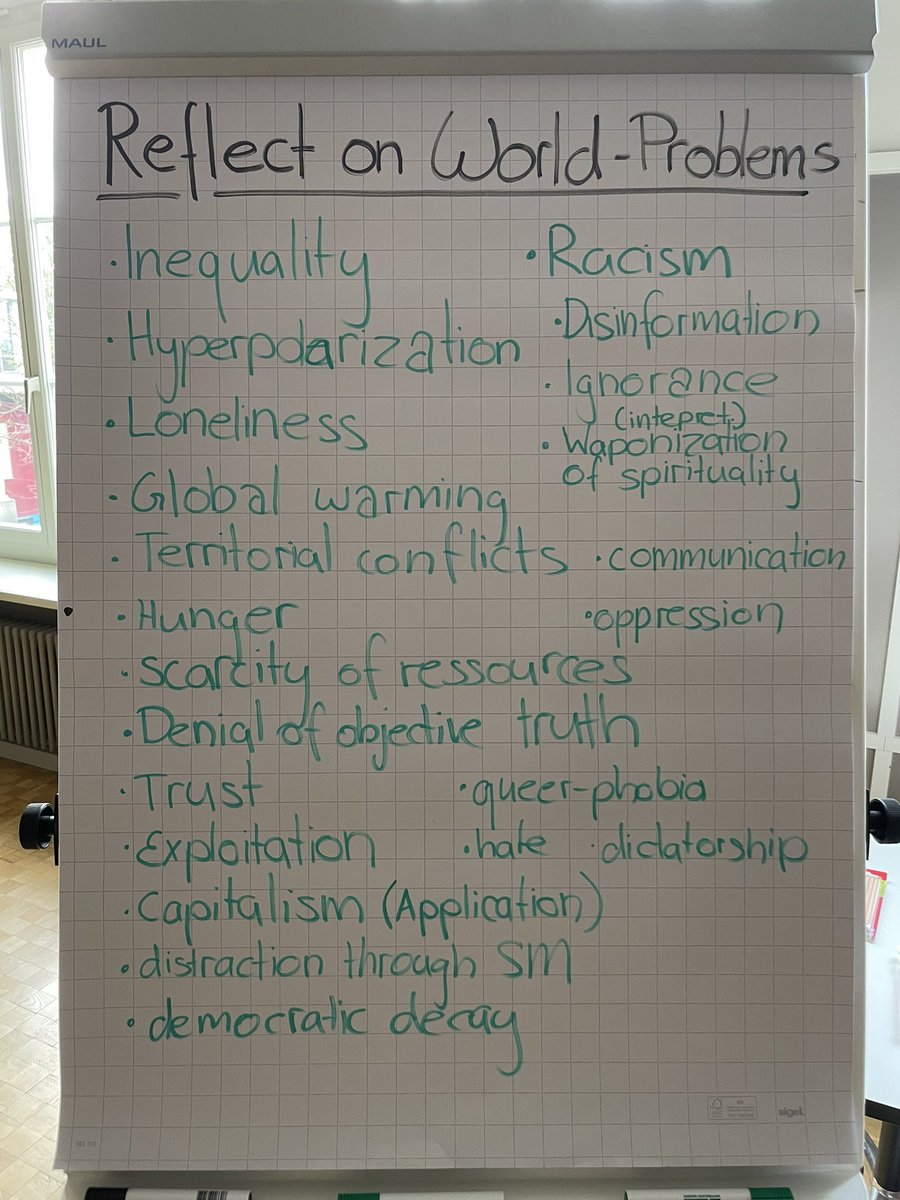 MAUL
Reflect on World-Problems
· Inequality
· Hyperpolarization
· Loneliness
· Global warming
· Territorial conflicts
· Hunger
· Scarcity of ressources
· Denial of objective truth
· Trust
· Exploitation
· Capitalism (Application)
· distraction through SM
· democratic decay
· Racism
· Disinformation
· Ignorance
(intepret.)
· Waponization
of spirituality
· communication
· oppression
· queer-phobia
· hate · dictatorship
FSC
sigel